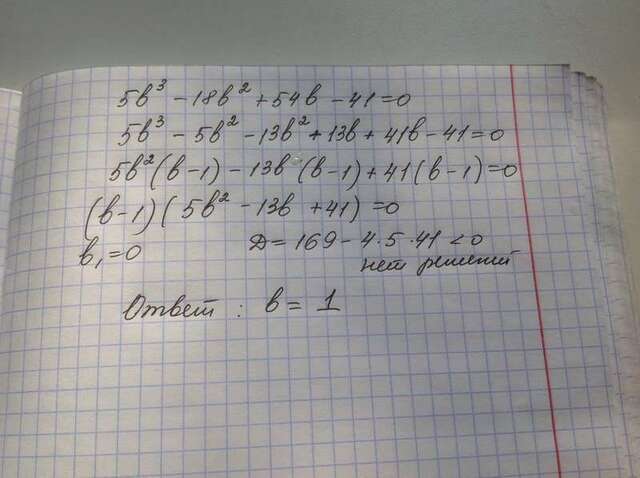 5в³ - 18в² + 54в - 41 = 0
5в³ - 5в² - 13в² + 13в + 41в - 41 = 0
5в² (в-1) - 13в (в-1) + 41 (в-1) = 0
(в-1) ( 5в² - 13в + 41) = 0
в₁ = 0 Д = 169 - 4·5·41 < 0
нет решений
Ответ : в = 1